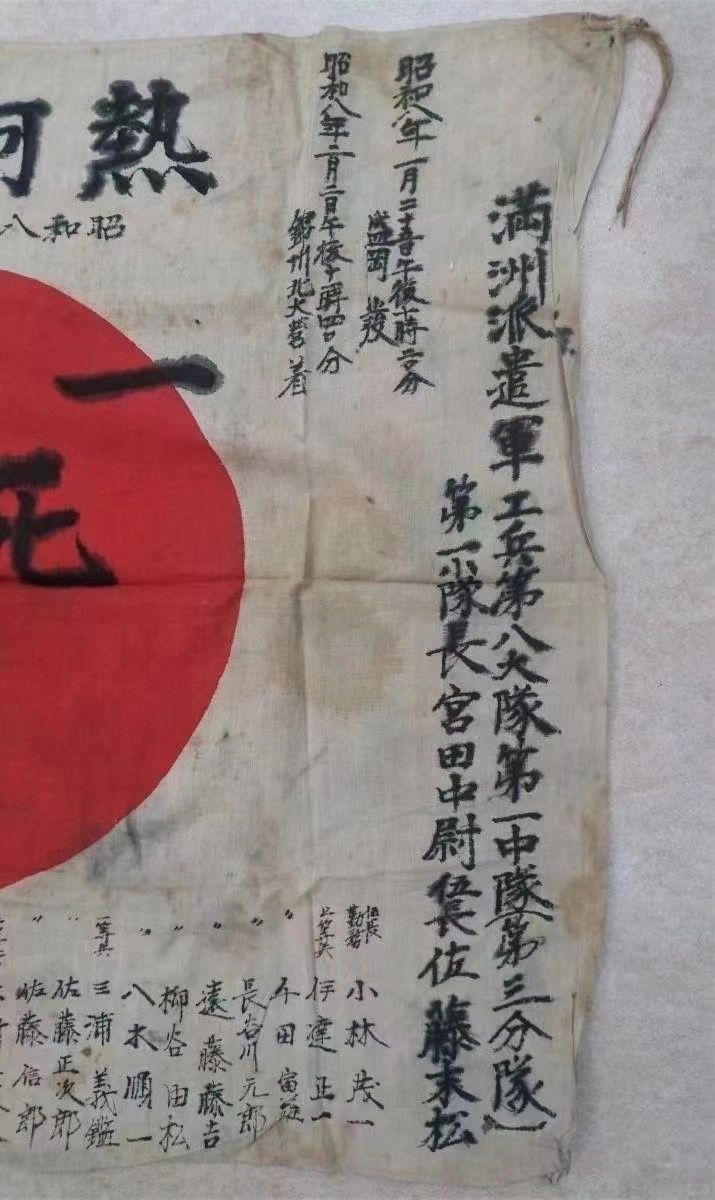 満洲派遣軍工兵第八大隊第一中隊(第三分隊)
第一小隊長宮田中尉伍長佐藤末松
昭和八年一月二十五日午後十時二〇分
盛岡出発
昭和八年二月二日午後十時四〇分
錦州北大営着
熱河
昭和八
一
死
伍長勤務 小林茂一
上等兵 伊達正一
〃 田寅雄
〃 長谷川元郎
〃 遠藤藤吉
〃 柳谷由松
〃 八木順一
一等兵 三浦義鑑
〃 佐藤正次郎
〃 佐藤信郎